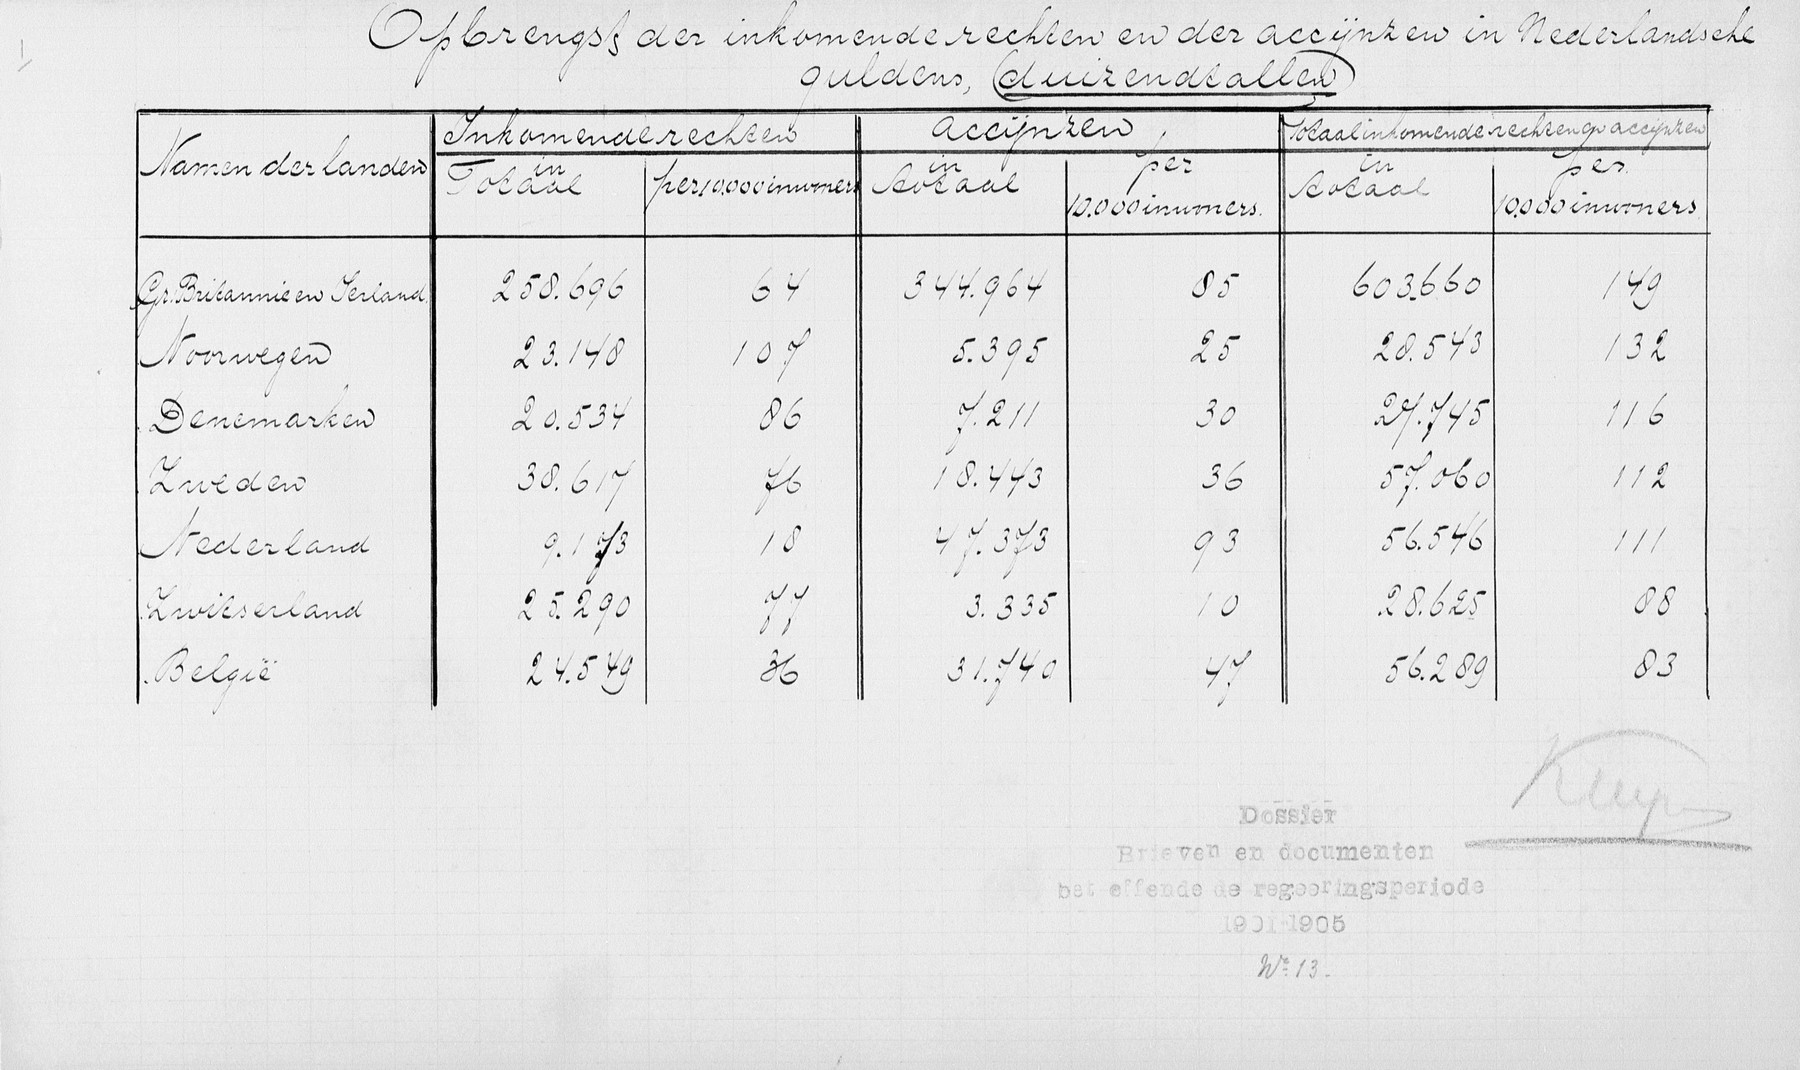 Opbrengst der inkomende rechten en der accijnzen in Nederlandsche
guldens, (duizendtallen)
Namen der landen | Inkomende rechten | accijnzen | Totaal inkomende rechten en accijnzen
in Totaal | per 10.000 inwoners | in totaal | per 10.000 inwoners. | in totaal | per 10.000 inwoners
Gr. Britannie en Ierland. 258.696 64 344.964 85 603.660 149
Noorwegen 23.148 107 5.395 25 28.543 132
Denemarken 20.534 86 7.211 30 27.745 116
Zweden 38.617 76 18.443 36 57.060 112
Nederland 9.173 18 47.373 93 56.546 111
Zwitserland 25.290 77 3.335 10 28.625 88
België 24.549 36 31.740 47 56.289 83
Dossier
Brieven en documenten
bet effende de regeeringsperiode
1901-1905
No 13.